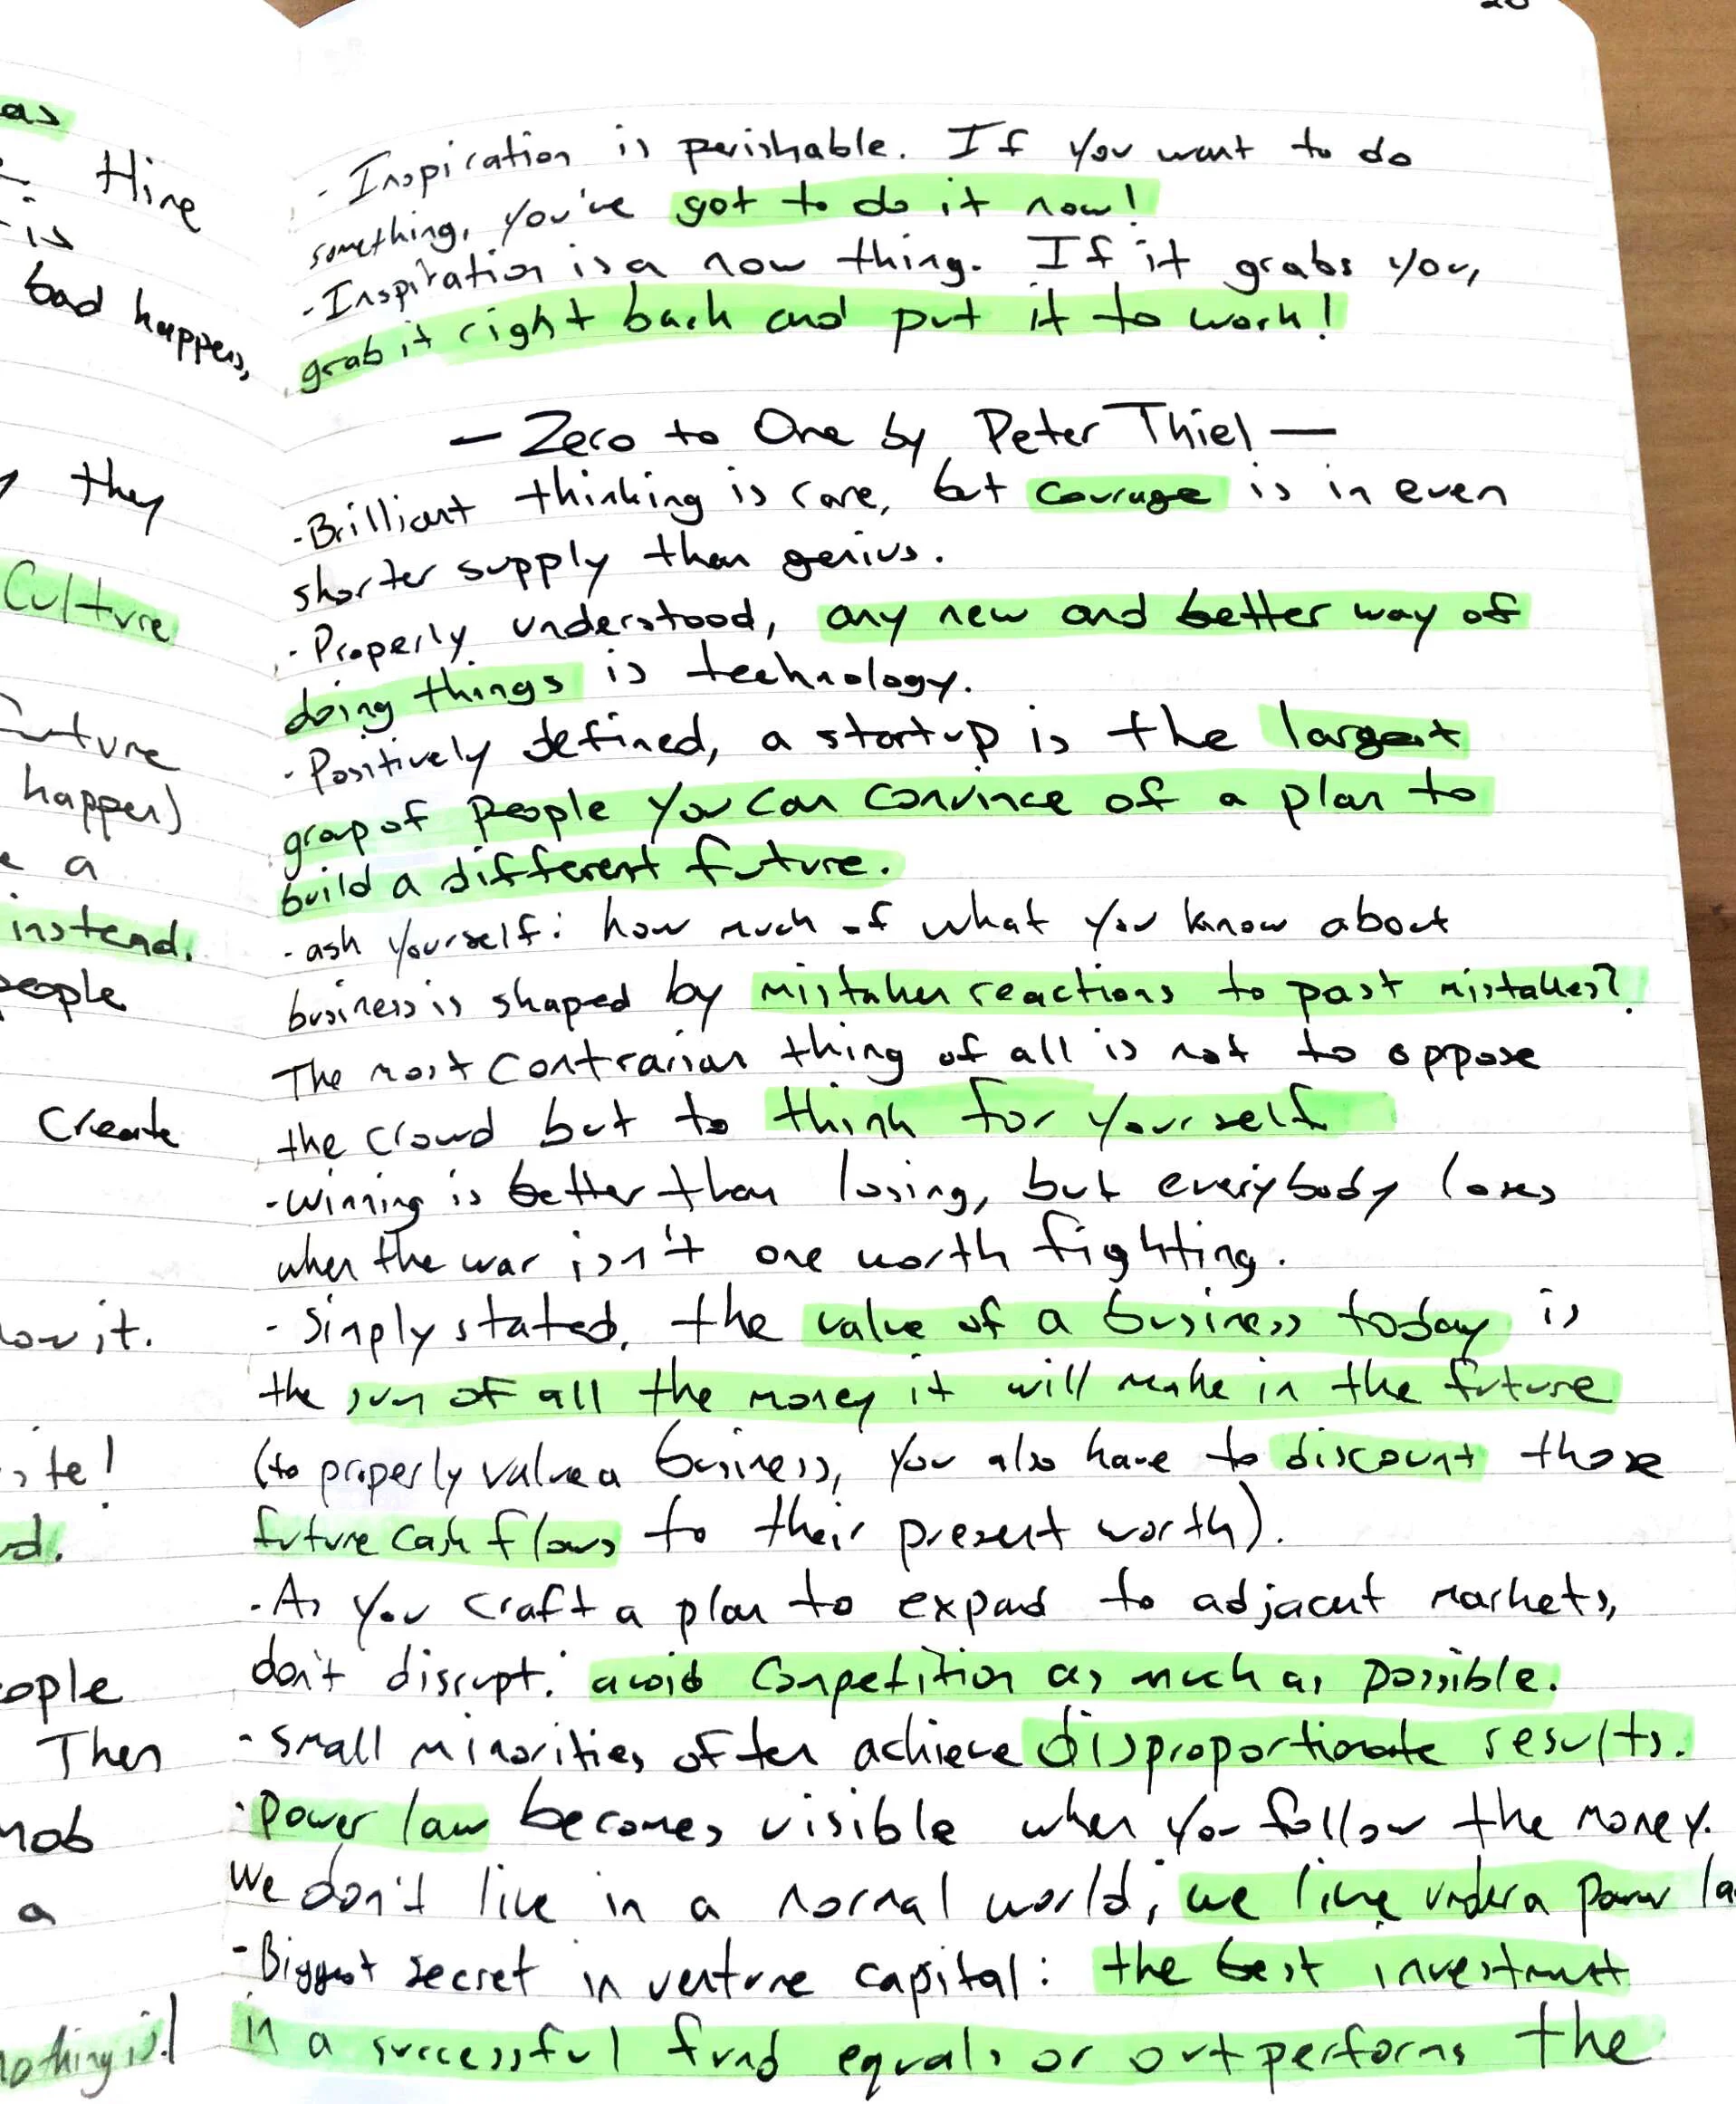 as
Hire
is
bad happens,
they
Culture
future
happen)
a
instead.
people
Create
it.
!
Then
a
nothing is!
- Inspiration is perishable. If you want to do
something, you've got to do it now!
- Inspiration is a now thing. If it grabs you,
grab it right back and put it to work!
— Zero to One by Peter Thiel —
- Brilliant thinking is rare, but courage is in even
shorter supply than genius.
- Properly understood, any new and better way of
doing things is technology.
- Positively defined, a startup is the largest
group of people you can convince of a plan to
build a different future.
- ask yourself: how much of what you know about
business is shaped by mistaken reactions to past mistakes?
The most contrarian thing of all is not to oppose
the crowd but to think for yourself
- Winning is better than losing, but everybody loses
when the war isn't one worth fighting.
- Simply stated, the value of a business today is
the sum of all the money it will make in the future
(to properly value a business, you also have to discount those
future cash flows to their present worth).
- As you craft a plan to expand to adjacent markets,
don't disrupt: avoid competition as much as possible.
- small minorities often achieve disproportionate results.
- Power law becomes visible when you follow the money.
We don't live in a normal world; we live under a power la
- Biggest secret in venture capital: the best investment
in a successful fund equals or outperforms the